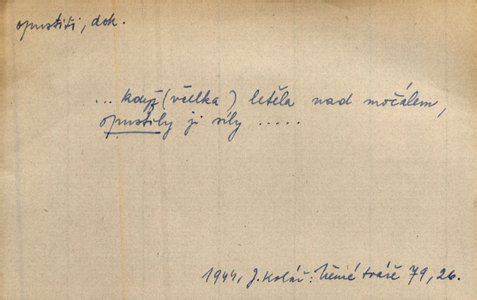 opustiti, dok.
... když (včelka) letěla nad močálem,
opustily ji síly .....
1944, J. Kolář: Němé tváře 79, 26.